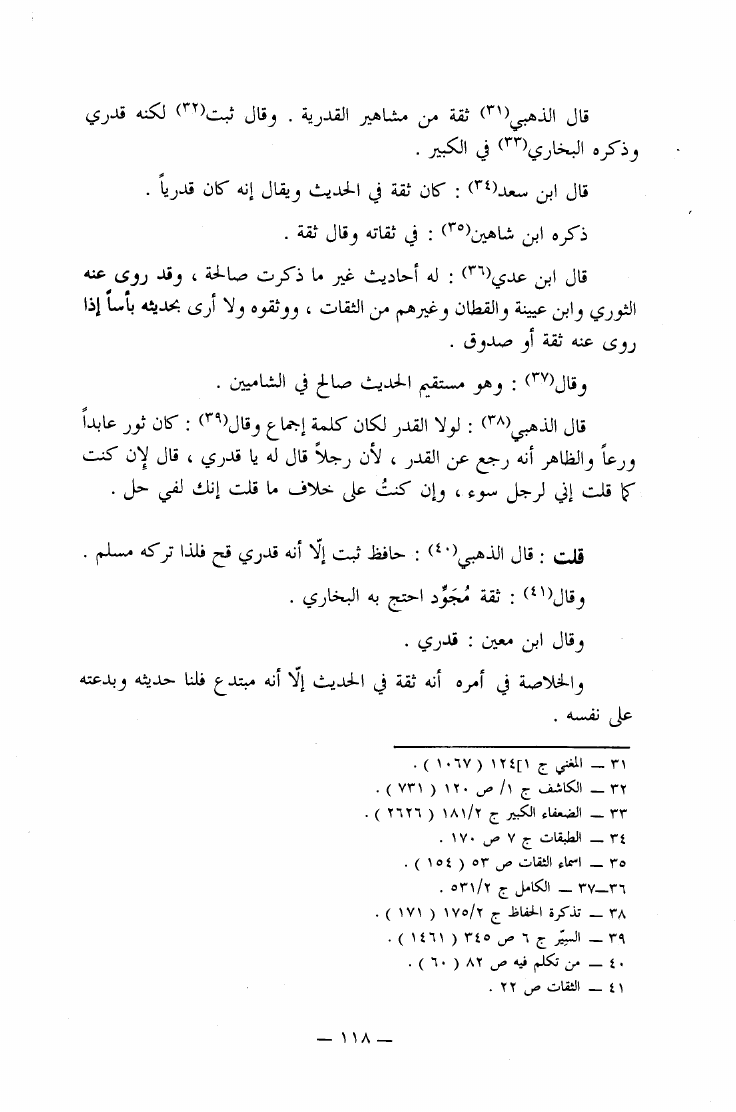 قال الذهبي(٣١) ثقة من مشاهير القدرية . وقال ثبت(٣٢) لكنه قدري
وذكره البخاري(٣٣) في الكبير .
قال ابن سعد(٣٤) : كان ثقة في الحديث ويقال إنه كان قدرياً .
ذكره ابن شاهين(٣٥) : في ثقاته وقال ثقة .
قال ابن عدي(٣٦) : له أحاديث غير ما ذكرت صالحة ، وقد روى عنه
الثوري وابن عيينة والقطان وغيرهم من الثقات ، ووثقوه ولا أرى بحديثه بأساً إذا
روى عنه ثقة أو صدوق .
وقال(٣٧) : وهو مستقيم الحديث صالح في الشاميين .
قال الذهبي(٣٨) : لولا القدر لكان كلمة إجماع وقال(٣٩) : كان ثور عابداً
ورعاً والظاهر أنه رجع عن القدر ، لأن رجلاً قال له يا قدري ، قال لإن كنت
كما قلت إني لرجل سوء ، وإن كنتُ على خلاف ما قلت إنك لفي حل .
قلت : قال الذهبي(٤٠) : حافظ ثبت إلّا أنه قدري قح فلذا تركه مسلم .
وقال(٤١) : ثقة مُجَوِّد احتج به البخاري .
وقال ابن معين : قدري .
والخلاصة في أمره أنه ثقة في الحديث إلّا أنه مبتدع فلنا حديثه وبدعته
على نفسه .
٣١ – المغني ج ١]١٢٤ ( ١٠٦٧ ) .
٣٢ – الكاشف ج ١/ ص ١٢٠ ( ٧٣١ ) .
٣٣ – الضعفاء الكبير ج ١٨١/٢ ( ٢٦٢٦ ) .
٣٤ – الطبقات ج ٧ ص ١٧٠ .
٣٥ – اسماء الثقات ص ٥٣ ( ١٥٤ ) .
٣٦–٣٧ – الكامل ج ٥٣١/٢ .
٣٨ – تذكرة الحفاظ ج ١٧٥/٢ ( ١٧١ ) .
٣٩ – السِيّر ج ٦ ص ٣٤٥ ( ١٤٦١ ) .
٤٠ – من تكلم فيه ص ٨٢ ( ٦٠ ) .
٤١ – الثقات ص ٢٢ .
– ١١٨ –